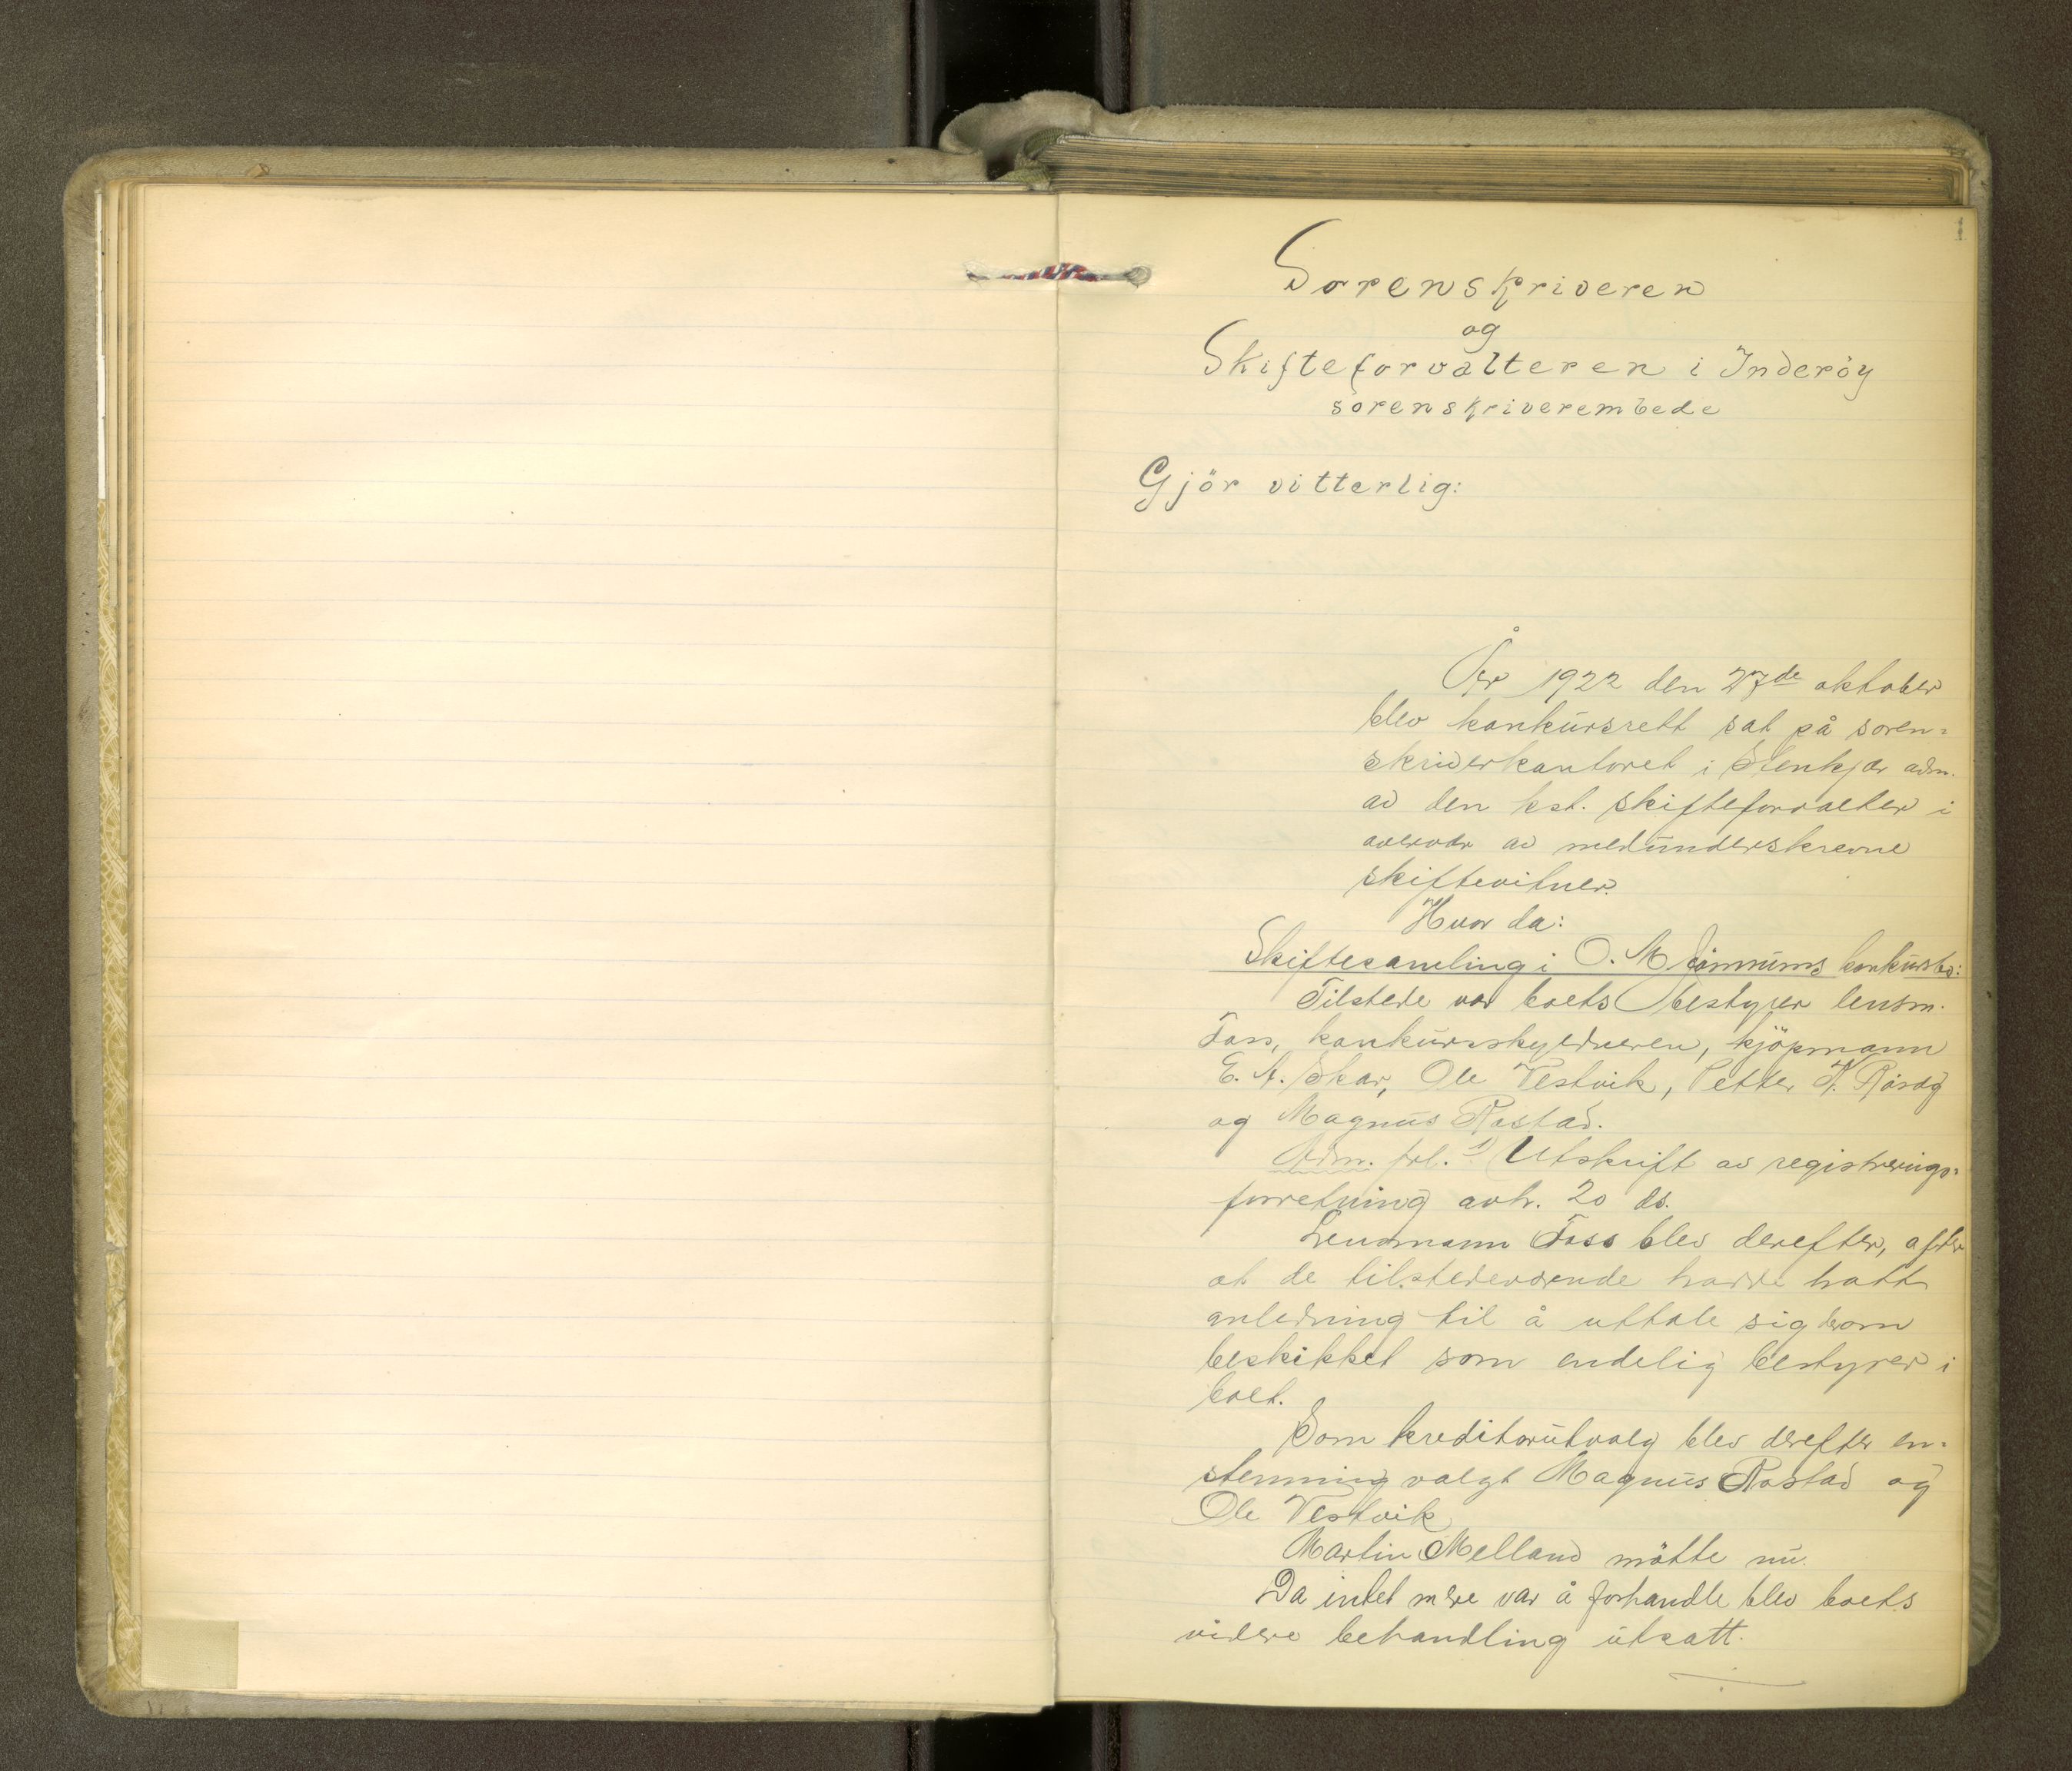 1
Sorenskriveren
og
Skifteforvalteren i Inderöy
sorenskriverembede
Gjör vitterlig:
År 1922 den 27de oktober
blev konkursrett sat på soren=
skriverkontoret i Stenkjær adm.
av den kst. skifteforvalter i
overvær av medunderskrevne
skiftevitner.
Hvor da:
Skiftesamling i O. M. konkursbo:
Tilstede var boets bestyrer lensm.
Foss, konkursskyldneren, kjöpmann
E. A. Skar, Ole Vestvik, Petter
og Magnus Rostad.
Adm. frl. 1) Utskrift av registrerings=
forretning avh. 20 ds.
Lensmann Foss blev derefter, after
at de tilstedeværende hadde hatt
anledning til å uttale sig derom
beskikket som endelig bestyrer i
boet.
Som kreditorutvalg blev derefter en=
stemmig valgt Magnus Rostad og
Ole Vestvik
Martin Melland mötte nu.
Da intet mere var å forhandle blev boets
videre behandling utsatt.